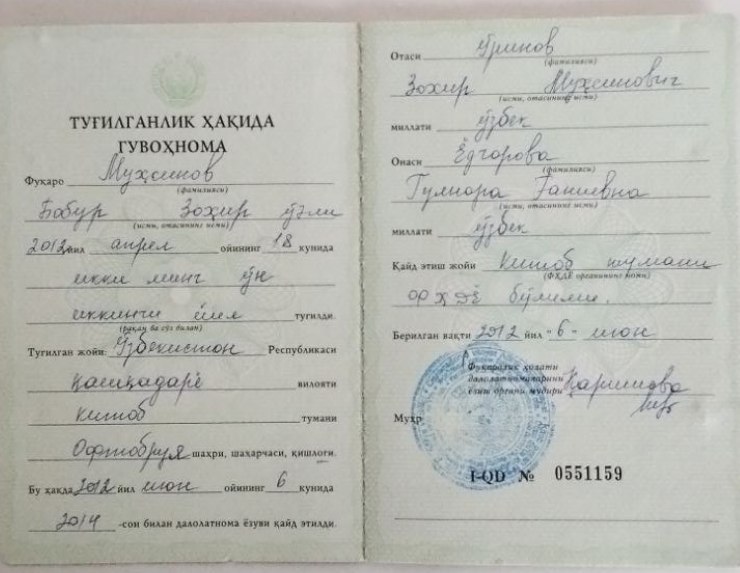 ТУҒИЛГАНЛИК ҲАҚИДА
ГУВОҲНОМА
Фуқаро Муҳсинов
(фамилияси)
Бобур Зохир ўғли
(исми, отасининг исми)
2012 йил апрел ойининг 18 кунида
икки минг ўн
иккинчи йил туғилди.
(рақам ва сўз билан)
Туғилган жойи: Ўзбекистон Республикаси
Қашқадарё вилояти
Китоб тумани
Офтобруя шаҳри, шаҳарчаси, қишлоғи.
Бу ҳақда 2012 йил июн ойининг 6 кунида
2014 -сон билан далолатнома ёзуви қайд этилди.
Отаси Ўринов
(фамилияси)
Зохир Муҳсинович
(исми, отасининг исми)
миллати ўзбек
Онаси Ёдгорова
(фамилияси)
Гулнора Ганиевна
(исми, отасининг исми)
миллати ўзбек
Қайд этиш жойи Китоб тумани
(ФҲДЁ органининг номи)
ФҲДЁ бўлими.
Берилган вақти 2012 йил "6" июн
Фуқаролик ҳолати
далолатномаларини
ёзиш органи мудири Каримова
Муҳр
I-QD № 0551159